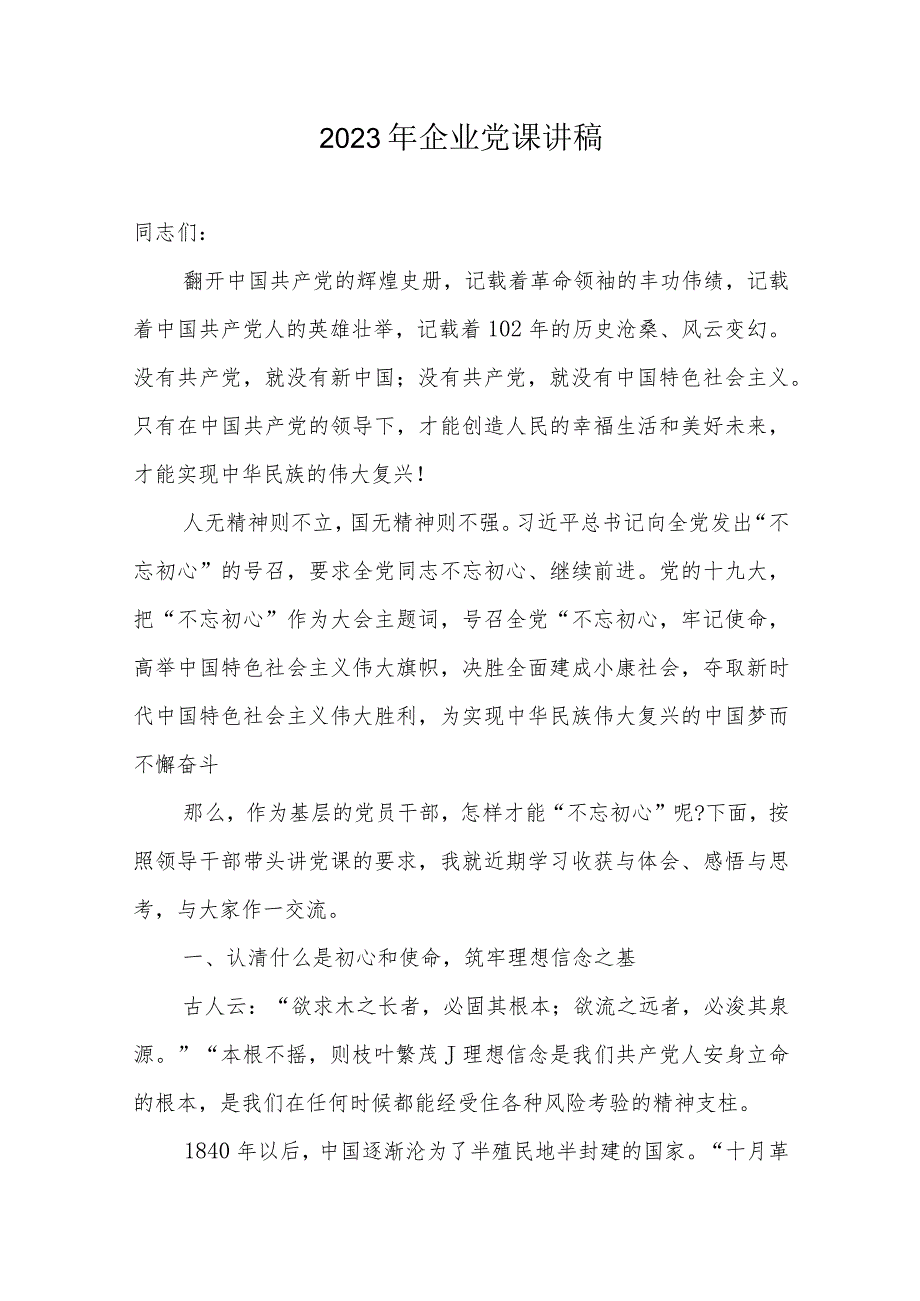 2023年企业党课讲稿
同志们：
翻开中国共产党的辉煌史册，记载着革命领袖的丰功伟绩，记载
着中国共产党人的英雄壮举，记载着102年的历史沧桑、风云变幻。
没有共产党，就没有新中国；没有共产党，就没有中国特色社会主义。
只有在中国共产党的领导下，才能创造人民的幸福生活和美好未来，
才能实现中华民族的伟大复兴！
人无精神则不立，国无精神则不强。习近平总书记向全党发出“不
忘初心”的号召，要求全党同志不忘初心、继续前进。党的十九大，
把“不忘初心”作为大会主题词，号召全党“不忘初心，牢记使命，
高举中国特色社会主义伟大旗帜，决胜全面建成小康社会，夺取新时
代中国特色社会主义伟大胜利，为实现中华民族伟大复兴的中国梦而
不懈奋斗
那么，作为基层的党员干部，怎样才能“不忘初心”呢?下面，按
照领导干部带头讲党课的要求，我就近期学习收获与体会、感悟与思
考，与大家作一交流。
一、认清什么是初心和使命，筑牢理想信念之基
古人云：“欲求木之长者，必固其根本；欲流之远者，必浚其泉
源。”“本根不摇，则枝叶繁茂J理想信念是我们共产党人安身立命
的根本，是我们在任何时候都能经受住各种风险考验的精神支柱。
1840年以后，中国逐渐沦为了半殖民地半封建的国家。“十月革